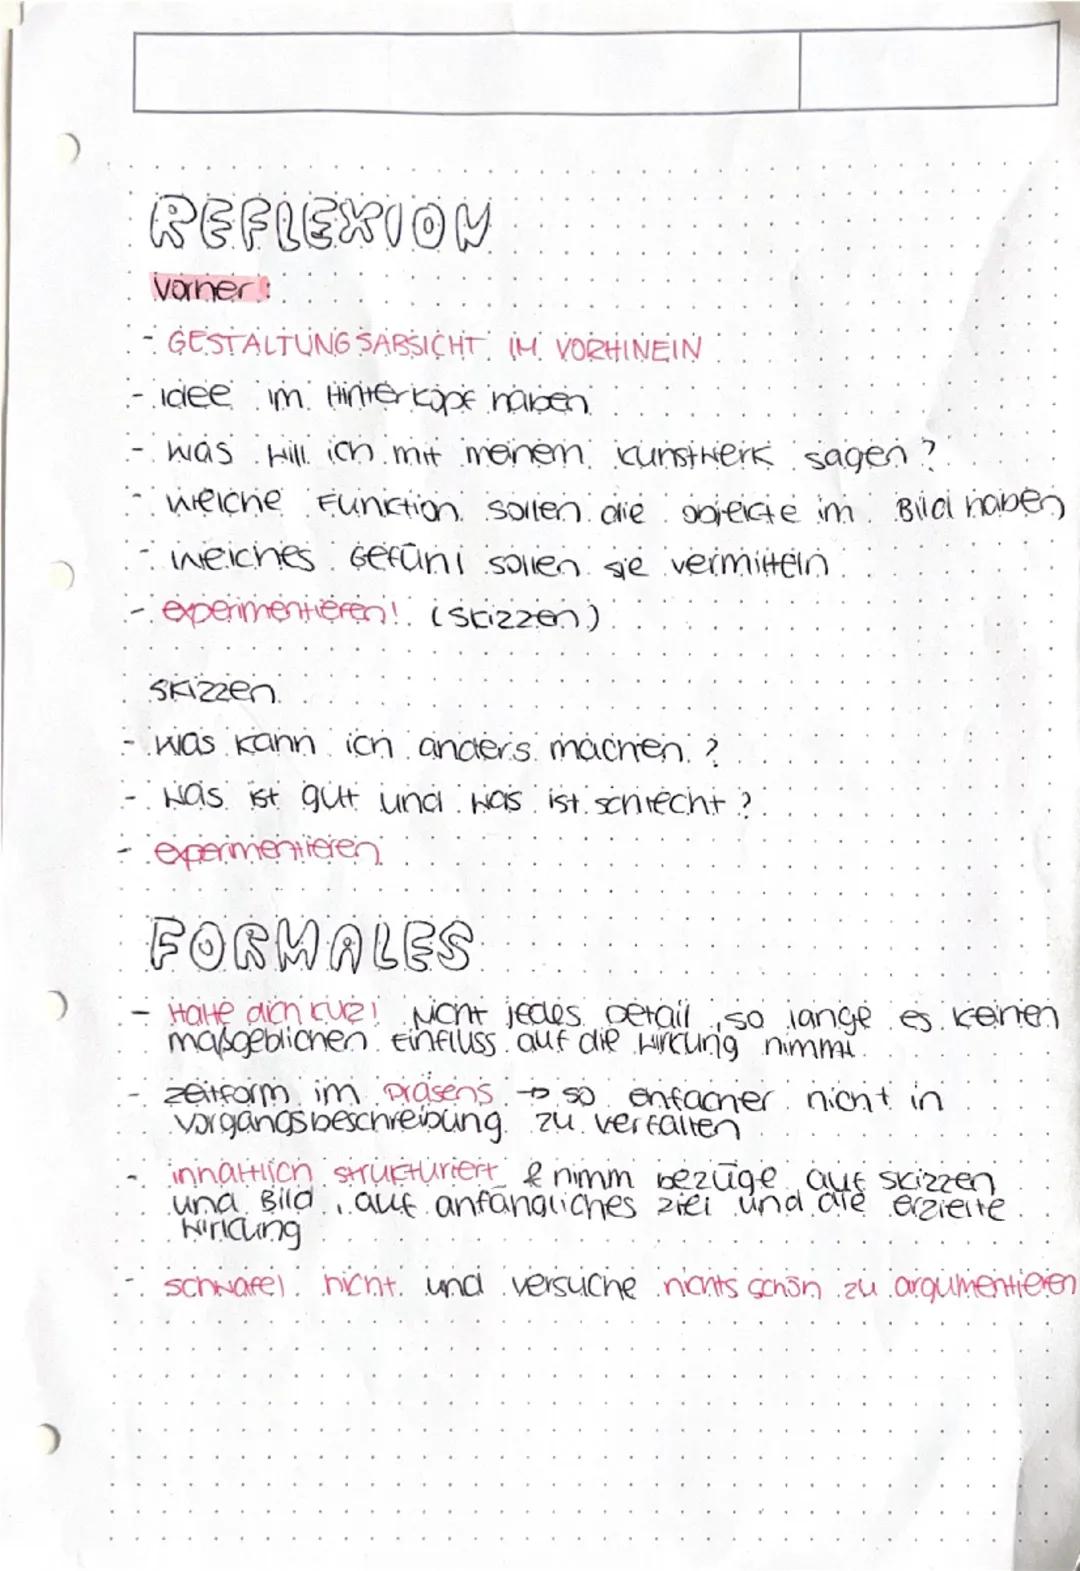 REFLEXION
Vorher:
- GESTALTUNGSABSICHT IM VORHINEIN
- idee im Hinterkopf haben
- was will ich mit meinem kunstwerk sagen?
- welche Funktion sollen die objekte im Bild haben
- welches Gefühl sollen sie vermitteln
- experimentieren! (Skizzen)
Skizzen
- was kann ich anders machen?
- was ist gut und was ist schlecht?
- experimentieren
FORMALES
- Halte dich kurz! Nicht jedes Detail, so lange es keinen
maßgeblichen Einfluss auf die Wirkung nimmt.
- zeitform im präsens → so einfacher nicht in
vorgangsbeschreibung zu verfallen
- inhaltlich strukturiert & nimm bezüge auf skizzen
und Bild, auf anfängliches ziel und die erzielte
Wirkung
- schwafel nicht und versuche nichts schön zu argumentieren